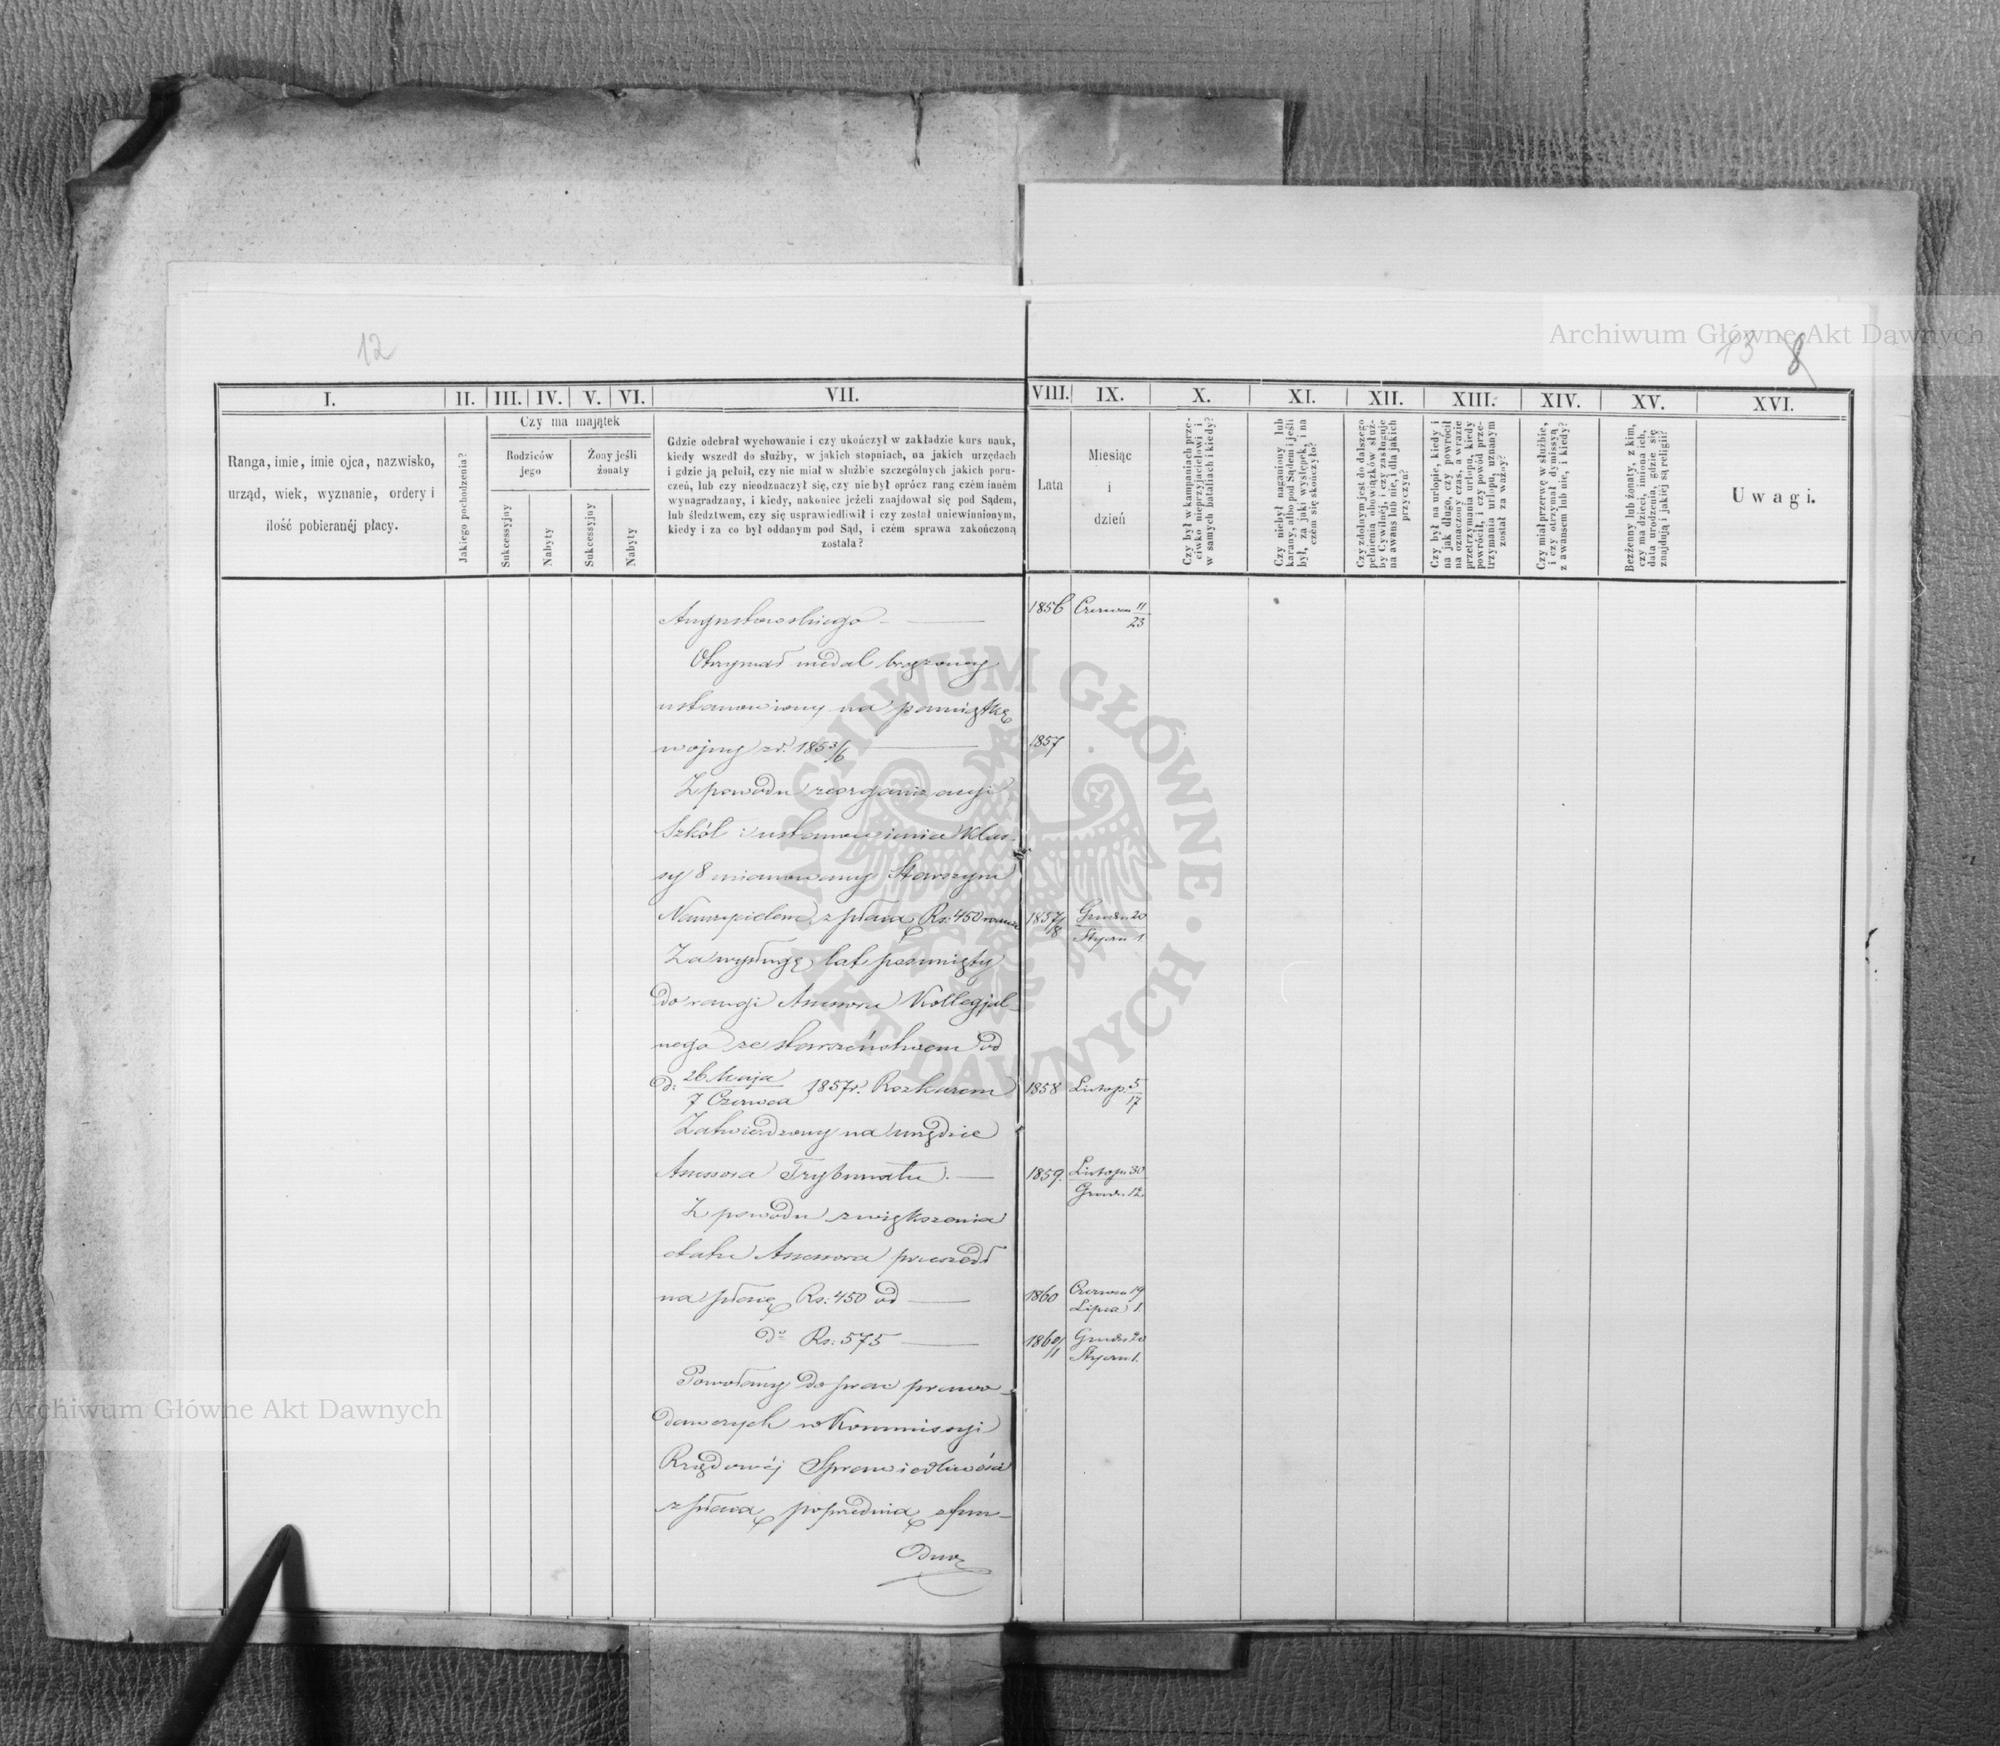 12
13 8
Archiwum Główne Akt Dawnych
I. II. III. IV. V. VI. VII. VIII. IX. X. XI. XII. XIII. XIV. XV. XVI.
Ranga, imie, imie ojca, nazwisko,
urząd, wiek, wyznanie, ordery i
ilość pobieranéj płacy.
Jakiego pochodzenia?
Czy ma majątek
Rodziców
jego
Żony jeśli
żonaty
Sukcessyjny
Nabyty
Sukcessyjny
Nabyty
Gdzie odebrał wychowanie i czy ukończył w zakładzie kurs nauk,
kiedy wszedł do służby, w jakich stopniach, na jakich urzędach
i gdzie ją pełnił, czy nie miał w służbie szczególnych jakich poru-
czeń, lub czy nieodznaczył się, czy nie był oprócz rang czém inném
wynagradzany, i kiedy, nakoniec jeżeli znajdował się pod Sądem,
lub śledztwem, czy się usprawiedliwił i czy został uniewinnionym,
kiedy i za co był oddanym pod Sąd, i czém sprawa zakończoną
została?
Lata
Miesiąc
i
dzień
Czy był w kampaniach prze-
ciwko nieprzyjacielowi i
w samych bataliach i kiedy?
Czy niebył naganiony lub
karany, albo pod Sądem i jeśli
był, za jaki występek, i na
czém się skończyło?
Czy zdolnym jest do dalszego
pełnienia obowiązków służ-
by Cywilnéj, i czy zasługuje
na awans lub nie, i dla jakich
przyczyn?
Czy był na urlopie, kiedy i
na jak długo, czy powrócił
na oznaczony czas, a w razie
przetrzymania urlopu, kiedy
powrócił, i czy powód prze-
trzymania urlopu, uznanym
został za ważny?
Czy miał przerwę w służbie,
i czy otrzymał dymissyą,
z awansem lub nie, i kiedy?
Bezżenny lub żonaty, z kim,
czy ma dzieci, imiona ich,
data urodzenia, gdzie się
znajdują i jakiej są religii?
Uwagi.
Augustowskiego — 1856 Czerwca 11/23
Otrzymał medal bronzowy
ustanowiony na pamiątkę
wojny z r. 1853/6 — 1857
Z powodu reorganizacyi
Szkół i ustanowienia Klas-
sy 8 mianowany Starszym
Nauczycielem z płacą Rs: 450 rocznie 1857/8 Grudn 20/Stycz 1
Za wysługę lat posunięty
do rangi Assessora Kollegjal-
nego ze starszeństwem od
d: 26 Maja/7 Czerwca 1857 r. Rozkazem 1858 Listop. 5/17
Zatwierdzony na urzędzie
Assessora Trybunału. — 1859. Listop. 30/Grudn. 12.
Z powodu zwiększenia
etatu Assessora przeszedł
na płacę Rs: 450 od — 1860 Czerwca 19/Lipca 1.
do Rs: 575 — 1860/1 Grudn 20/Stycz 1.
Powołany do prac prawo-
dawczych w Kommissyi
Rządowéj Sprawiedliwości
z płacą poprzednią z fun-
Archiwum Główne Akt Dawnych
ARCHIWUM GŁÓWNE · AKT DAWNYCH ·